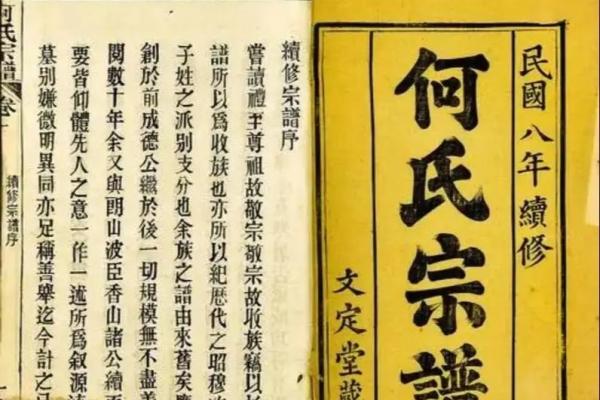 民國八年續修
何氏宗譜
文定堂藏
續修宗譜序
嘗讀禮至尊祖故敬宗敬宗故收族竊以
譜所以爲收族也亦所以紀歷代之昭穆
子姓之派別支分也余族之譜由來舊矣
創於前成德公繼於後一切規模無不盡善
閱數十年余又與朗山波臣香山諸公續
要皆仰體先人之意一作一述所爲叙源
墓別嫌微明異同亦足稱善舉迄今計之
何氏宗譜
卷一
續修宗譜序